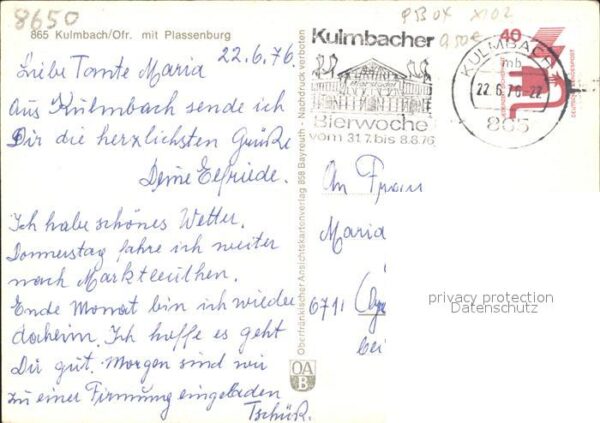 8650
865 Kulmbach/Ofr. mit Plassenburg
22.6.76
Liebe Tante Maria
Aus Kulmbach sende ich
Dir die herzlichsten Grüße
Deine Elfriede.
Ich habe schönes Wetter.
Donnerstag fahre ich weiter
nach Marktleuthen.
Ende Monat bin ich wieder
daheim. Ich hoffe es geht
Dir gut. Morgen sind wir
zu einer Firmung eingeladen
Tschüß.
Oberfränkischer Ansichtskartenverlag 858 Bayreuth - Nachdruck verboten
OA
B
Kulmbacher
Bierwoche
vom 31.7. bis 8.8.76
KULMBACH 1
mb
22.6.76-22
865
40
An Frau
Maria
671
bei
privacy protection
Datenschutz